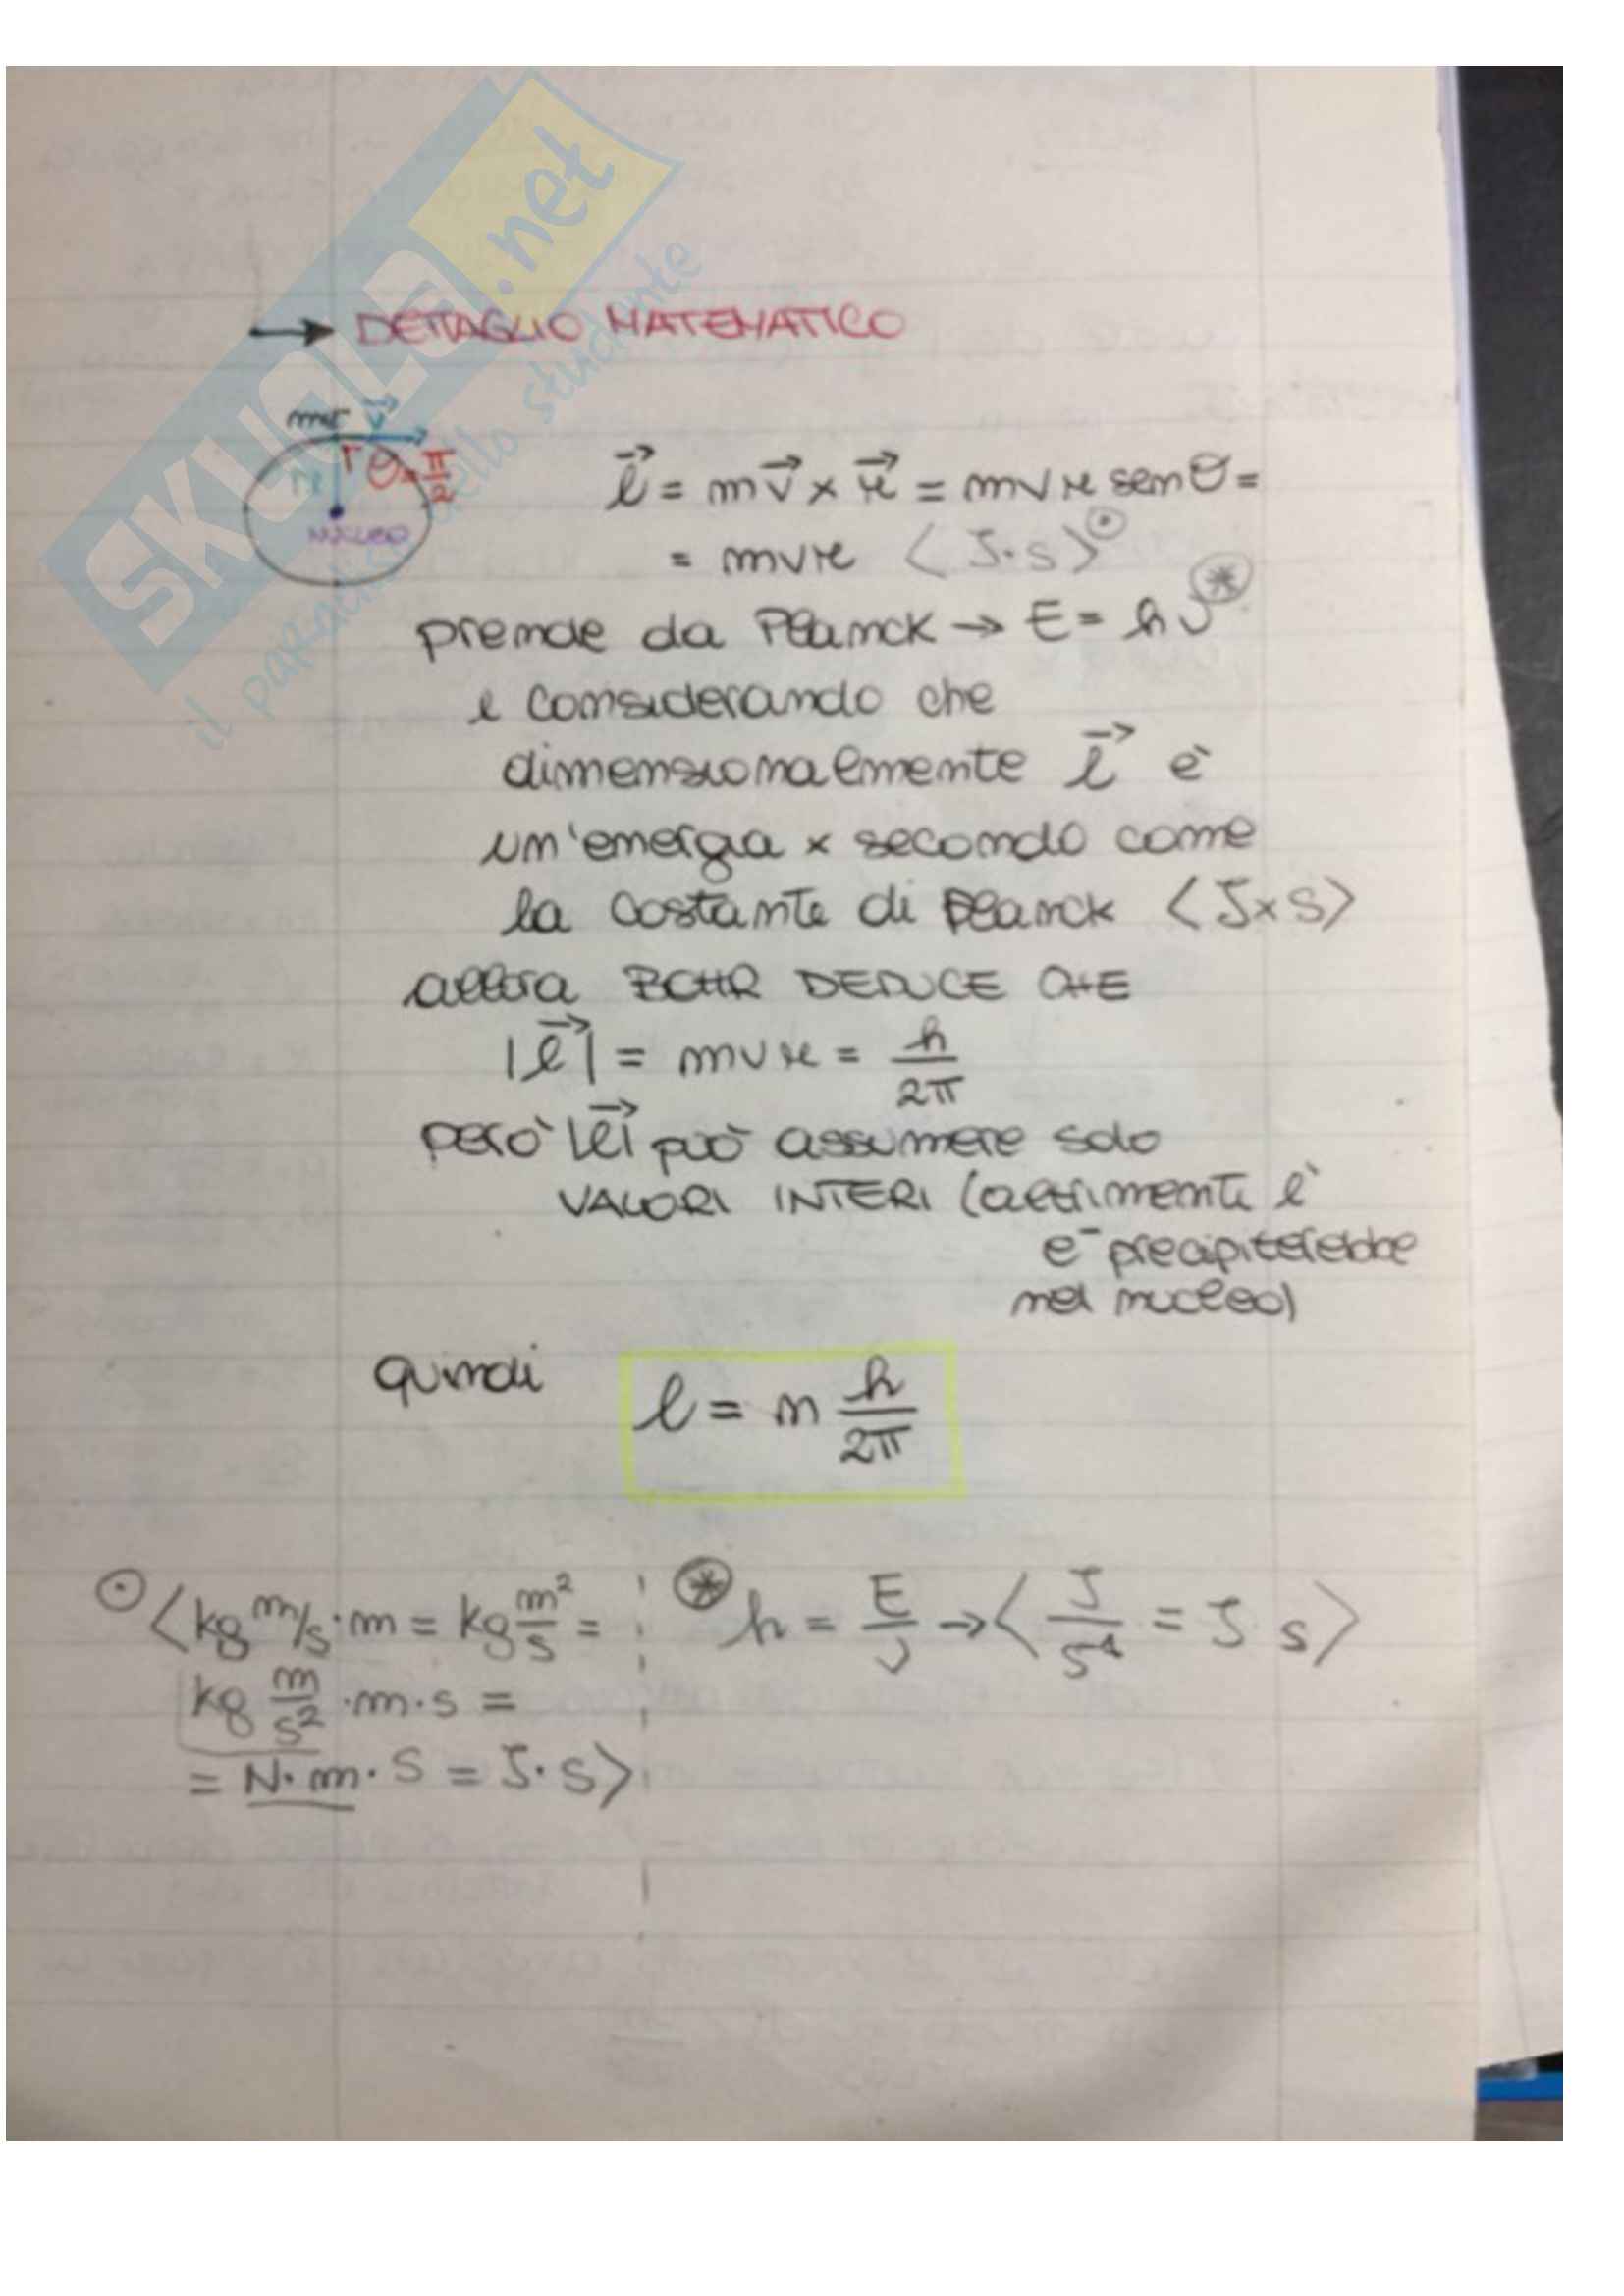 SKUOLA.net
il paradiso dello studente
→ DETTAGLIO MATEMATICO
v⃗
r θ=π/2
NUCLEO
l⃗ = mv⃗ × r⃗ = mvr senθ =
= mvr ⟨J·s⟩ ⊙
prende da Planck → E = hν ⊛
e considerando che
dimensionalmente l⃗ è
un'energia × secondo come
la costante di Planck ⟨J×s⟩
allora BOHR DEDUCE CHE
|l⃗| = mvr = h/2π
però |l⃗| può assumere solo
VALORI INTERI (altrimenti l'
e⁻ precipiterebbe
nel nucleo)
quindi l = n h/2π
⊙ ⟨kg m/s · m = kg m²/s =
kg m/s² · m · s =
= N·m · s = J·s⟩
⊛ h = E/ν → ⟨J/s⁻¹ = J s⟩